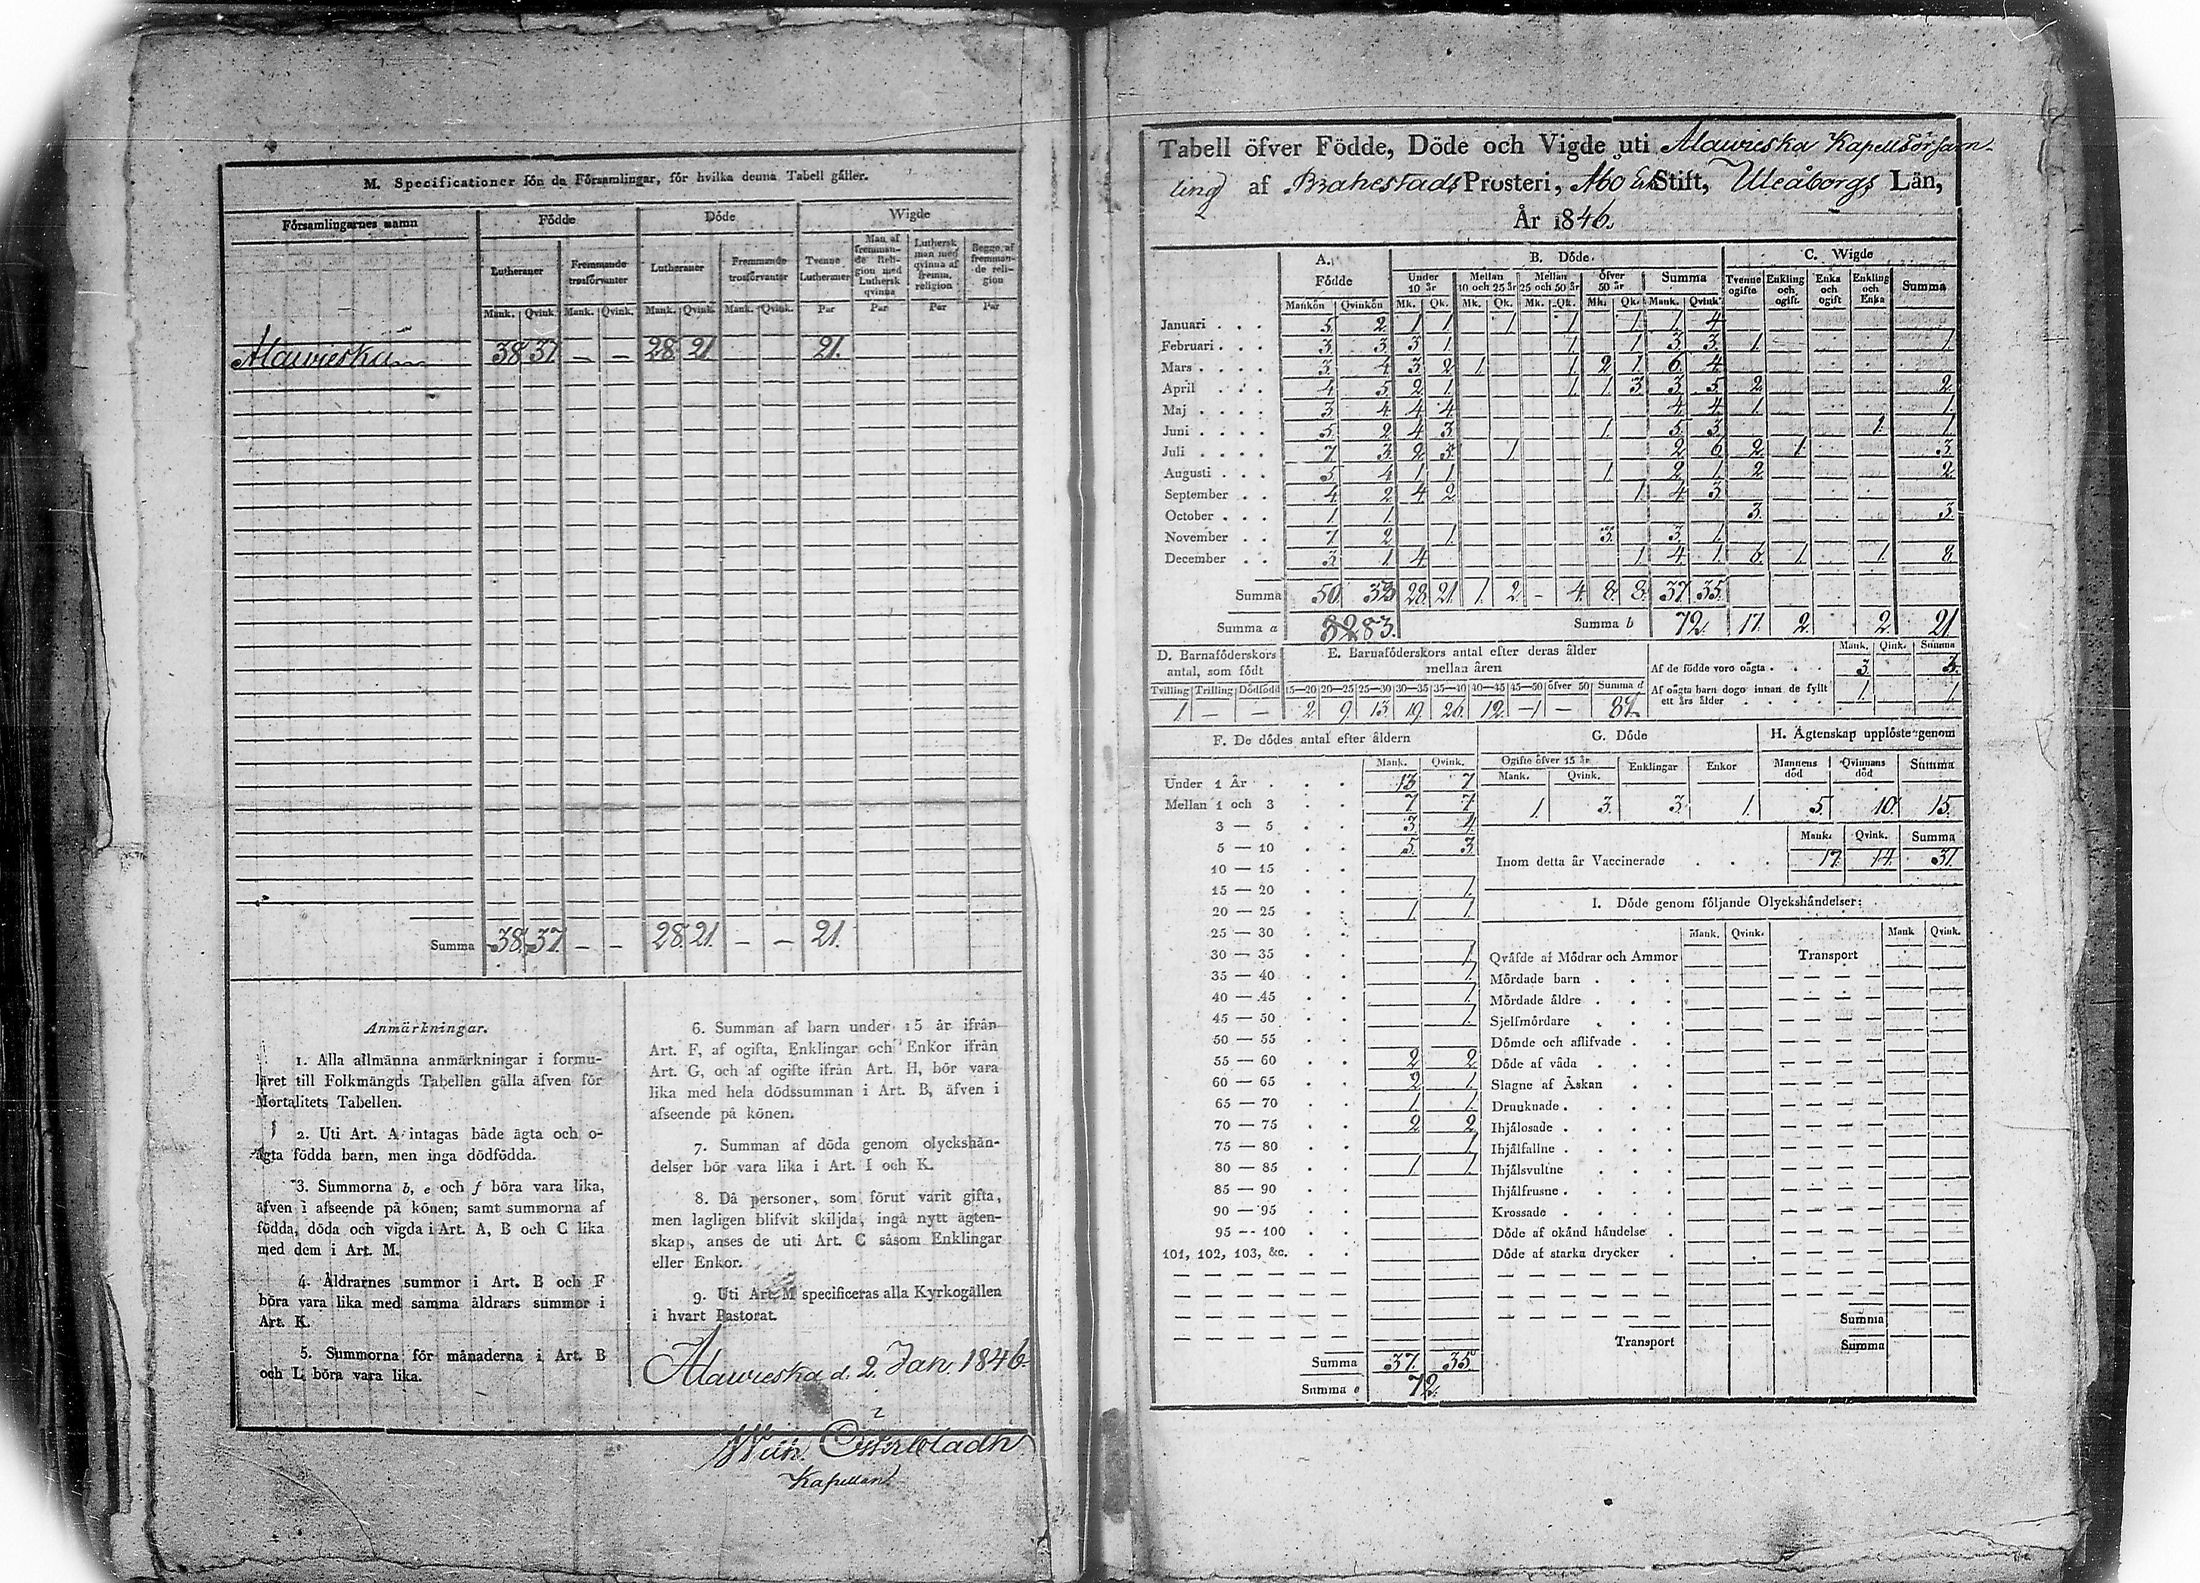 M. Specificationer för de Församlingar, för hvilka denna Tabell gäller.
Församlingarnes namn Födde Döde Wigde
Lutheraner Fremmande trosförvanter Lutheraner Fremmande trosförvanter Tvenne Lutheraner Man af fremmande Religion med Luthersk qvinna Luthersk man med qvinna af fremm. religion Begge af fremmande religion
Mank. Qvink. Mank. Qvink. Mank. Qvink. Mank. Qvink. Par Par Par Par
Alawieska 38 37 — — 28 21 21.
Summa 38. 37. — — 28. 21. — — 21.
Anmärkningar.
1. Alla allmänna anmärkningar i formu-
läret till Folkmängds Tabellen gälla äfven för
Mortalitets Tabellen.
2. Uti Art. A intagas både ägta och o-
ägta födda barn, men inga dödfödda.
3. Summorna b, e och f böra vara lika,
äfven i afseende på könen; samt summorna af
födda, döda och vigda i Art. A, B och C lika
med dem i Art. M.
4. Åldrarnes summor i Art. B och F
böra vara lika med samma åldrars summor i
Art. K.
5. Summorna för månaderna i Art. B
och L böra vara lika.
6. Summan af barn under 15 år ifrån
Art. F, af ogifta, Enklingar och Enkor ifrån
Art. G, och af ogifte ifrån Art. H, bör vara
lika med hela dödssumman i Art. B, äfven i
afseende på könen.
7. Summan af döda genom olyckshän-
delser bör vara lika i Art. I och K.
8. Då personer, som förut varit gifta,
men lagligen blifvit skiljda, ingå nytt ägten-
skap, anses de uti Art. C såsom Enklingar
eller Enkor.
9. Uti Art. M specificeras alla Kyrkogällen
i hvart Pastorat.
Alawieska d. 2. Jan. 1846.
Wilh. Österbladh
Kapellan
Tabell öfver Födde, Döde och Vigde uti Alawieska Kapellförsam-
ling af Brahestads Prosteri, Åbo Stift, Uleåborgs Län,
År 1846.
A. Födde B. Döde C. Wigde
Under 10 år Mellan 10 och 25 år Mellan 25 och 50 år Öfver 50 år Summa Tvenne ogifte Enkling och ogift. Enka och ogift Enkling och Enka Summa
Mankön Qvinkön Mk. Qk. Mk. Qk. Mk. Qk. Mk. Qk. Mank. Qvink.
Januari 5 2 1 1 1 1 1 1 4
Februari 3 3 3 1 1 1 3 3 1 1
Mars 3 4 3 2 1 1 2 1 6 4
April 4 5 2 1 1 1 3 3 5 2 2
Maj 3 4 4 4 4 4 1 1
Juni 5 2 4 3 1 5 3 1 1
Juli 7 3 2 5 1 2 6 2 1 3
Augusti 5 4 1 1 1 2 1 2 2
September 4 2 4 2 1 4 3
October 1 1 3 3
November 7 2 1 3 3 1
December 3 1 4 1 4 1 6 1 1 8
Summa 50 33 28 21 1 2 — 4 8 8 37 35
Summa a 83. Summa b 72 17 2 2 21
D. Barnaföderskors antal, som födt
Tvilling Trilling Dödfödd
1 — —
E. Barnaföderskors antal efter deras ålder mellan åren
15—20 20—25 25—30 30—35 35—40 40—45 45—50 öfver 50 Summa d
2 9 13 19 26 12 1 — 82
Mank. Qink. Summa
Af de födde voro oägta 3 3
Af oägta barn dogo innan de fyllt ett års ålder 1 1
F. De dödes antal efter åldern
Mank. Qvink.
Under 1 År 13 7
Mellan 1 och 3 7 7
3 — 5 3 4
5 — 10 5 3
10 — 15
15 — 20 1
20 — 25 1 1
25 — 30
30 — 35 1
35 — 40 1
40 — 45 1
45 — 50 1
50 — 55
55 — 60 2 2
60 — 65 2 1
65 — 70 1 1
70 — 75 2 2
75 — 80 1
80 — 85 1 1
85 — 90
90 — 95
95 — 100
101, 102, 103, &c.
Summa 37. 35.
Summa e 72.
G. Döde
Ogifte öfver 15 år Enklingar Enkor
Mank. Qvink.
1 3 3 1
H. Ägtenskap upplöste genom
Mannens död Qvinnans död Summa
5 10 15
Mank. Qvink. Summa
Inom detta år Vaccinerade 17 14 31
I. Döde genom följande Olyckshändelser:
Mank. Qvink. Mank Qvink.
Qväfde af Mödrar och Ammor Transport
Mördade barn
Mördade äldre
Sjelfmördare
Dömde och aflifvade
Döde af våda
Slagne af Åskan
Drunknade
Ihjälosade
Ihjälfallne
Ihjälsvultne
Ihjälfrusne
Krossade
Döde af okänd händelse
Döde af starka drycker
Summa
Transport Summa